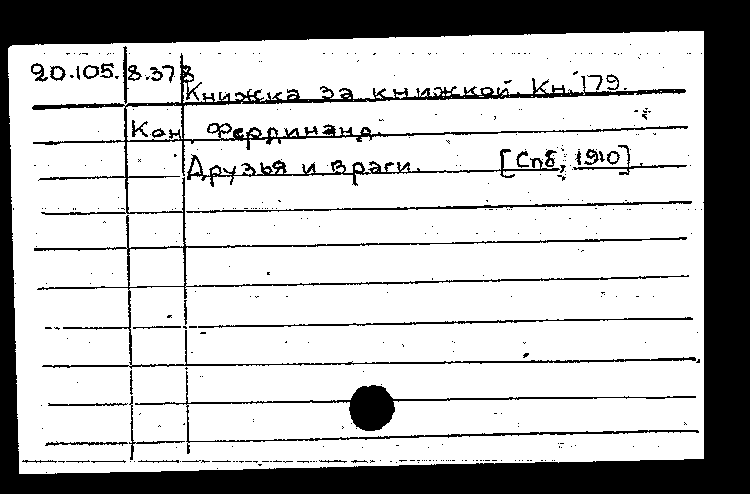 20.105. 8.378
Книжка за книжкой. Кн. 179.
Кон, Фердинанд.
Друзья и враги. [Спб, 1910].